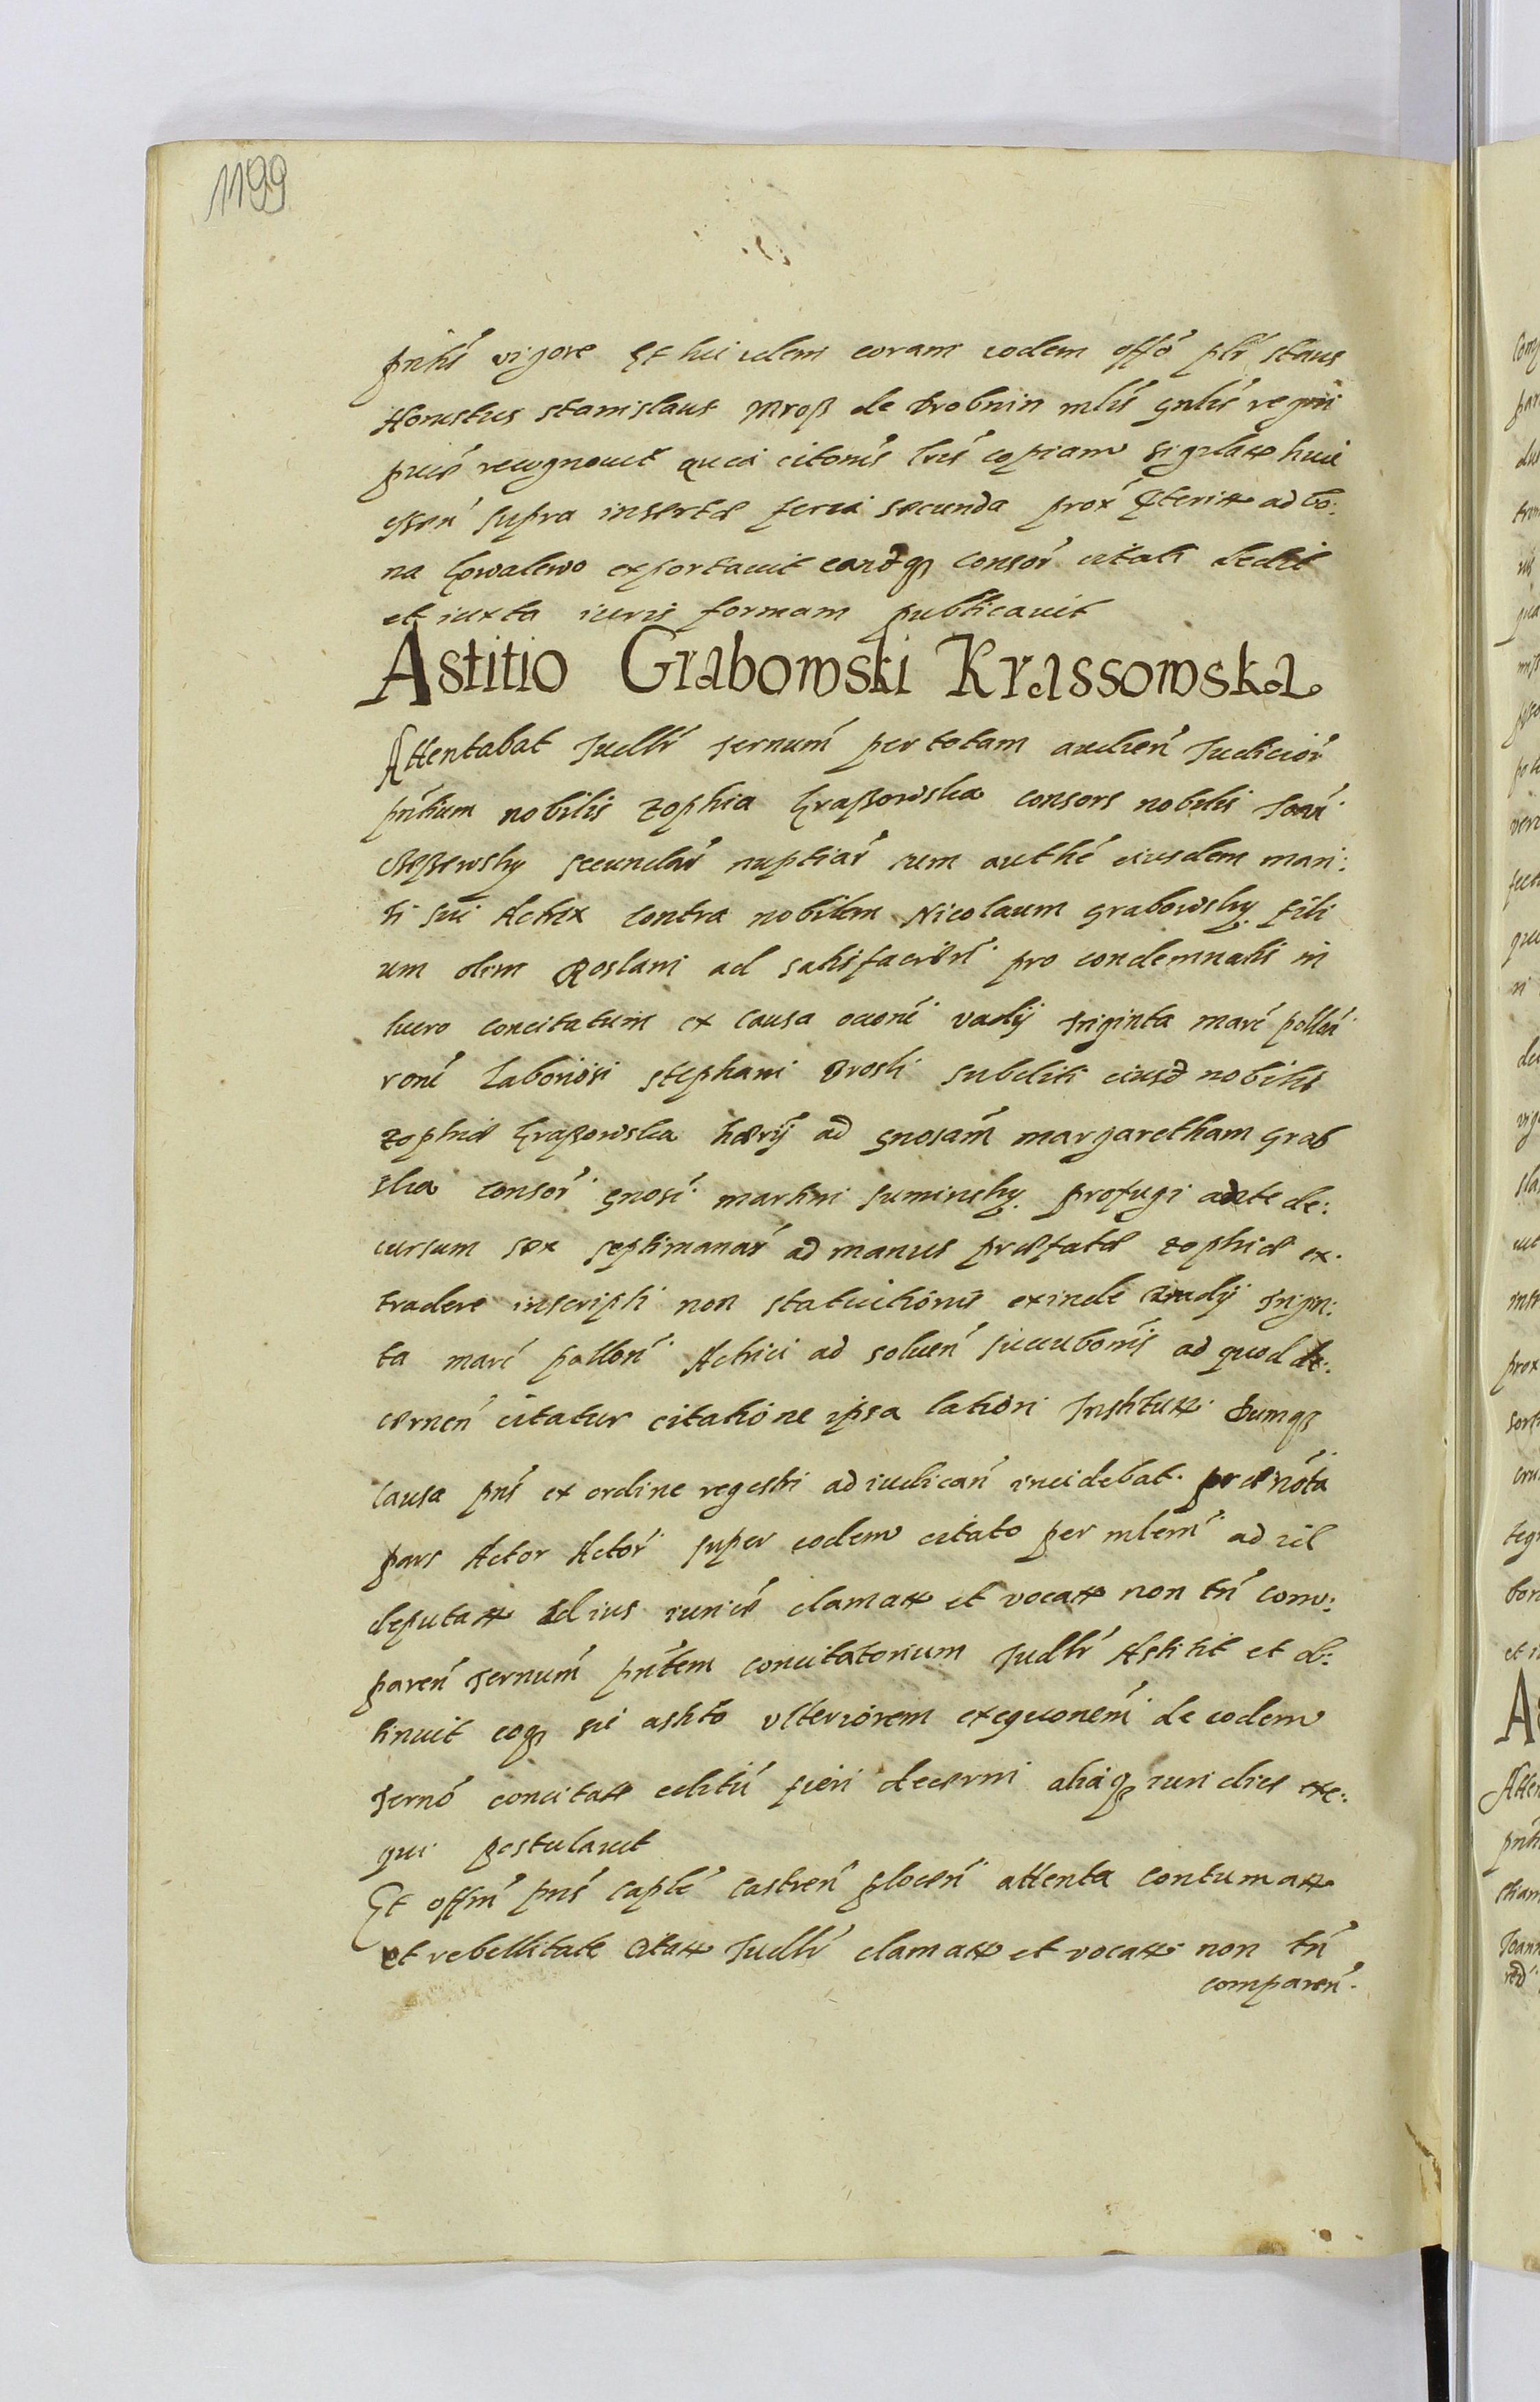 1199
pntis vigore Et hic idem coram eodem offo plr staus
Honestus stanislaus Mroß de Drobnin mlis gnlis regni
recognovit citonis lris copiam sigilat huic
supra insertæ feria secunda prox pterit ad bo:
na exportavit eandqȝ consor citati dedit
et iuxta iuris formam publicavit
Astitio Grabowski Krassowska
Attentabat Judlr ternum per totam audien Judicior
pntium nobilis zophia kraßowska consors nobilis Joan
secundar nuptiar cum authe eiusdem mari:
ti sui Actrix contra nobilem Nicolaum grabowsky fili
um olim Roslani ad satisfacien pro condemnatis in
lucro concitatum ex causa vadij triginta marc pollon
rone Laboriosi stephani Brosk subditi eiusd nobilis
zophiæ kraßowska ad gnosam margaretham Grab
ska consor gnosi martini suminsky profugi ante de:
cursum sex septimanar ad manus præfatæ zophiæ ex.
tradere inscripti non statuitionis exinde vadij trigin:
ta marc pollon Actrici ad soluen succubonis ad quod de:
cernen citatur citatione ipsa latiori Institut Dumqȝ
causa pns ex ordine regestri ad iudican incidebat prænota
pars Actor Actor super eodem citato per mlem ad id
deputat ad ius iurice clamat et vocat non tn com:
paren ternum pntem concitatorium Judlr Astitit et ob:
tinuit eoqȝ sic astito ulteriorem exequonem de eodem
terno concitat edictu fieri decerni aliaqȝ iuridice exe:
qui postulavit
Et offm pns caple castren plocen attenta contumat
et rebellitate citat Judlr clamat et vocat non tn
comparen